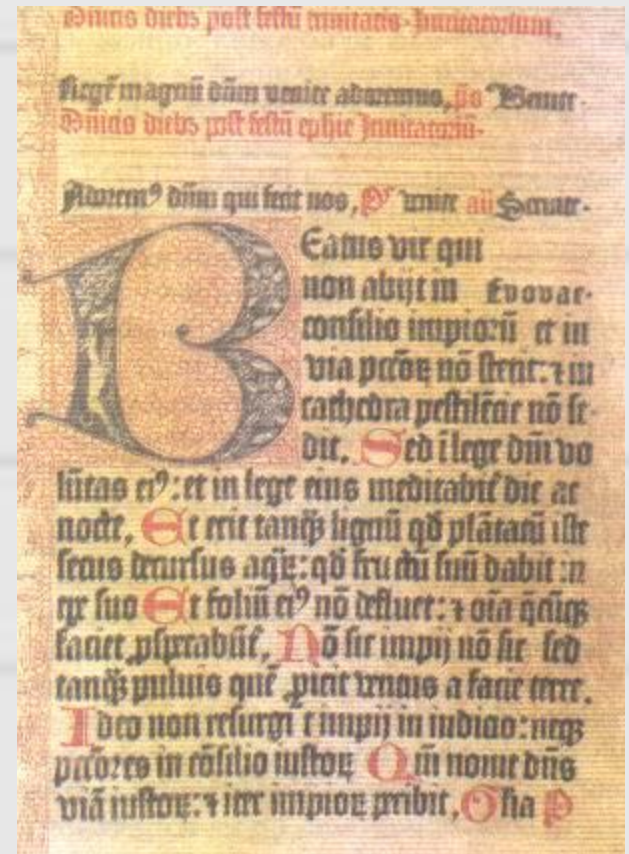 Dñicis diebs post festũ trinitatis. Inuitatorium.
Regẽ magnũ dñm venite adoremus, ps Venite.
Dñicis diebs post festũ ephie Inuitatoriũ.
Adorem⁹ dñm qui fecit nos, ps venite añ Seruite.
Beatus vir qui
non abijt in Evovae.
consilio impiorũ et in
via pctõꝝ nõ stetit: ⁊ in
cathedra pestilẽtie nõ se-
dit. Sed ĩ lege dñi vo
lũtas ei⁹: et in lege eius meditabit̃ die ac
nocte, Et erit tanqꝫ lignũ qđ plãtatũ est
secus decursus aqꝝ: qđ fructũ suũ dabit in
tpe suo Et foliũ ei⁹ nõ defluet: ⁊ oĩa q̃cũqꝫ
faciet ꝓsperabũt̃, Nõ sic impij nõ sic sed
tanqꝫ puluis quẽ ꝓicit ventus a facie terre.
Ideo non resurgũt impij in iudicio: neqꝫ
pctõres in cõsilio iustoꝝ Qm̃ nouit dñs
viã iustoꝝ: ⁊ iter impioꝝ peribit, Glia P